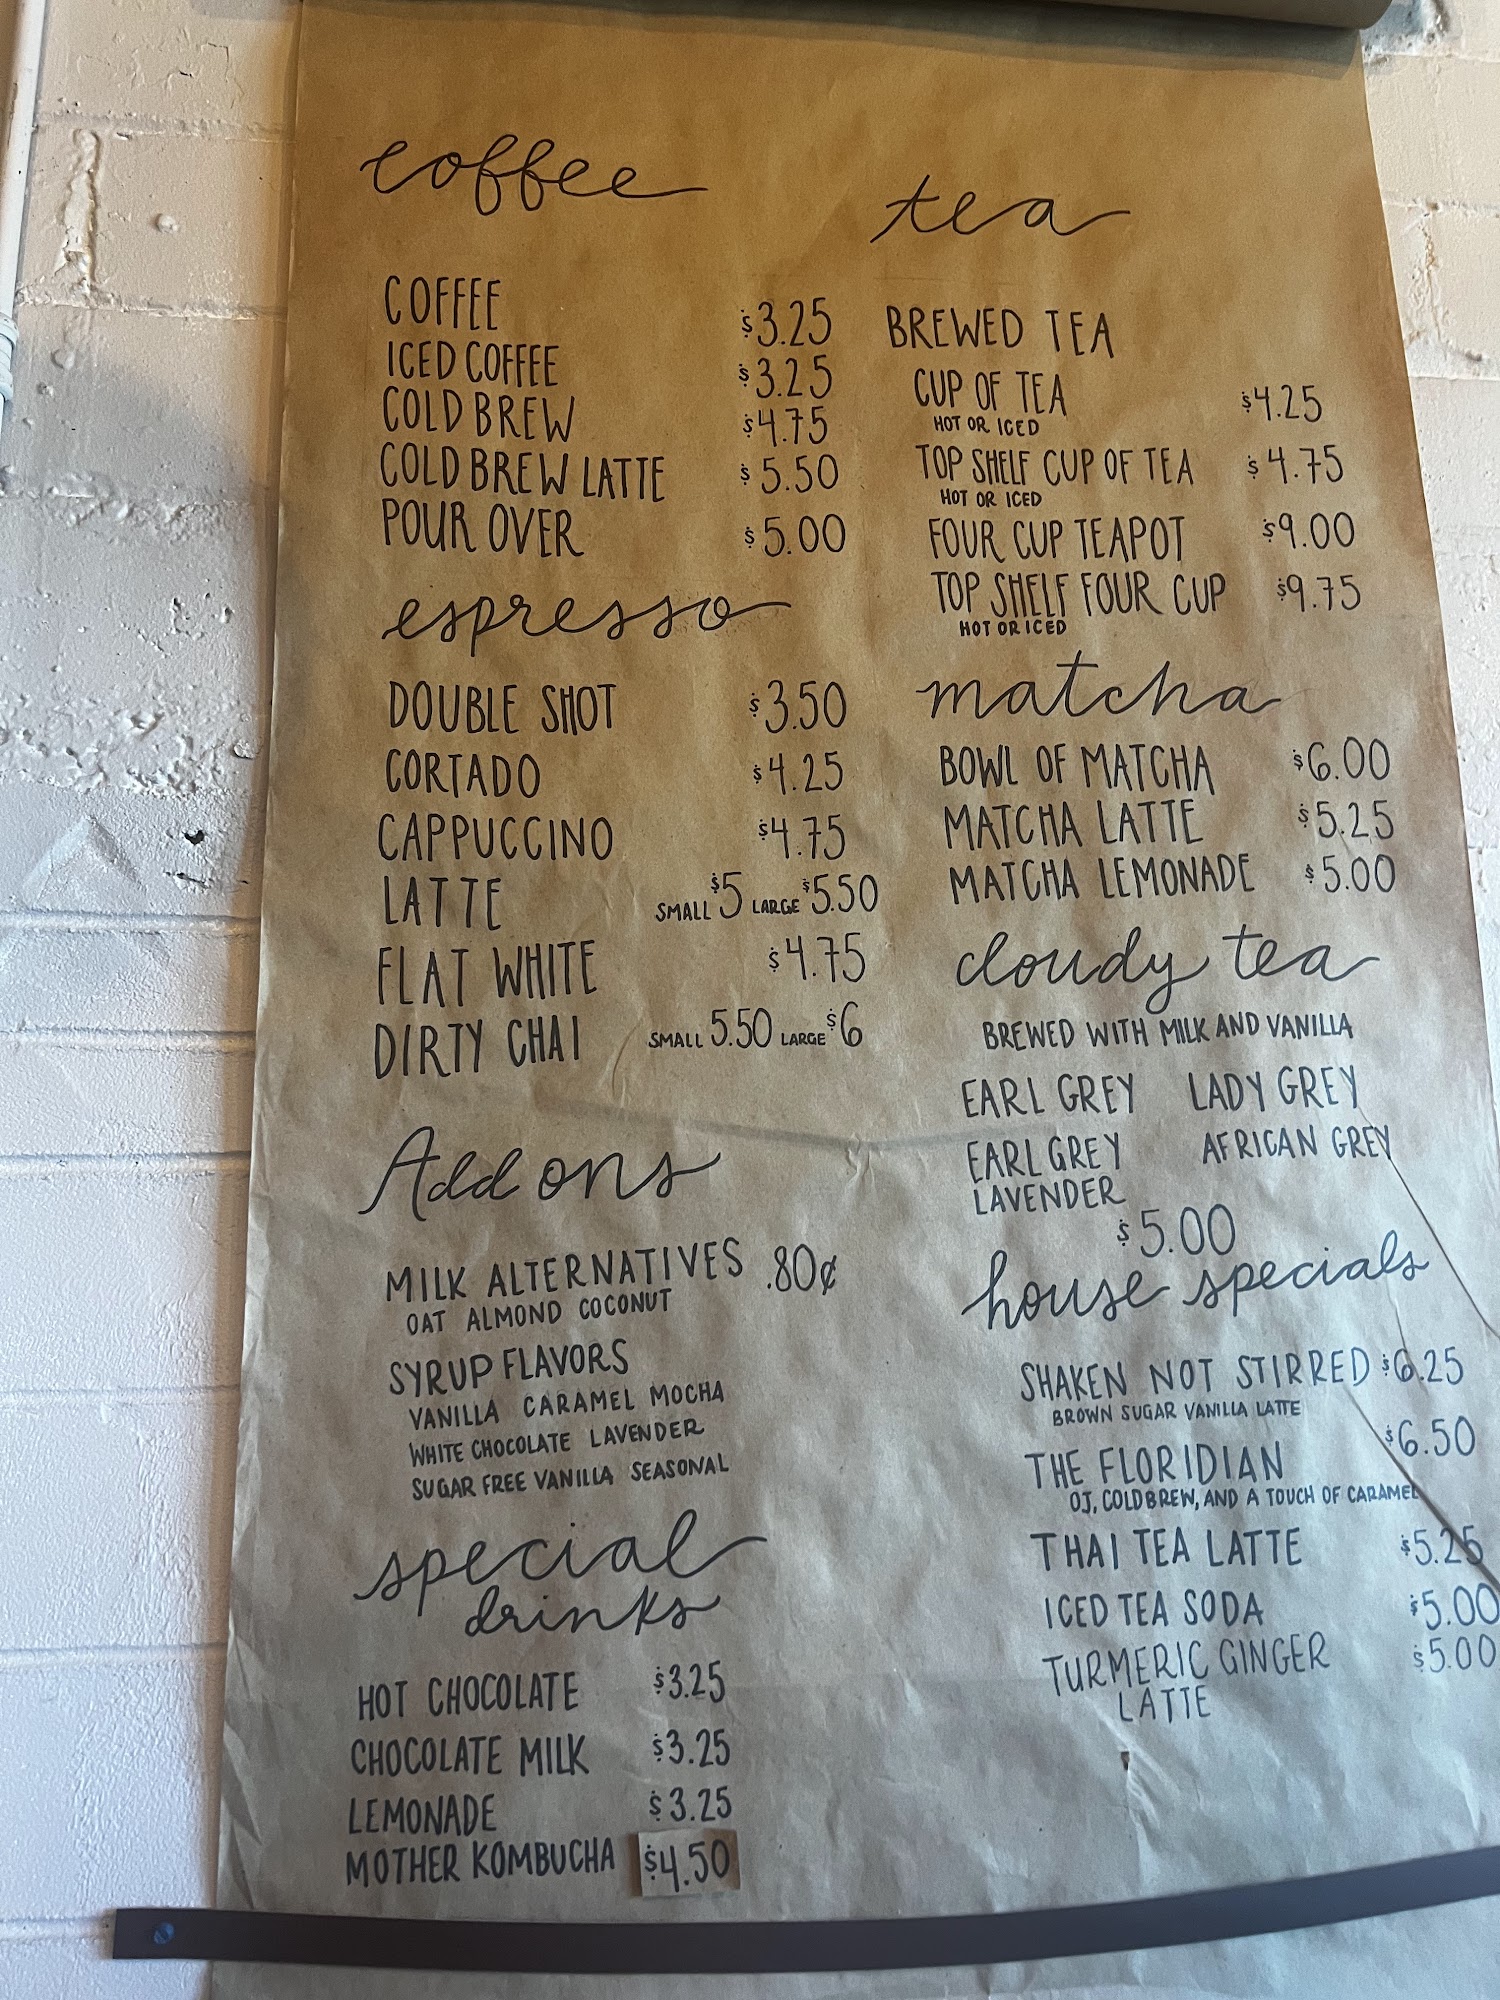 coffee
COFFEE $3.25
ICED COFFEE $3.25
COLD BREW $4.75
COLD BREW LATTE $5.50
POUR OVER $5.00
espresso
DOUBLE SHOT $3.50
CORTADO $4.25
CAPPUCCINO $4.75
LATTE SMALL $5 LARGE $5.50
FLAT WHITE $4.75
DIRTY CHAI SMALL 5.50 LARGE $6
Add ons
MILK ALTERNATIVES .80¢
OAT ALMOND COCONUT
SYRUP FLAVORS
VANILLA CARAMEL MOCHA
WHITE CHOCOLATE LAVENDER
SUGAR FREE VANILLA SEASONAL
special
drinks
HOT CHOCOLATE $3.25
CHOCOLATE MILK $3.25
LEMONADE $3.25
MOTHER KOMBUCHA $4.50
tea
BREWED TEA
CUP OF TEA $4.25
HOT OR ICED
TOP SHELF CUP OF TEA $4.75
HOT OR ICED
FOUR CUP TEAPOT $9.00
TOP SHELF FOUR CUP $9.75
HOT OR ICED
matcha
BOWL OF MATCHA $6.00
MATCHA LATTE $5.25
MATCHA LEMONADE $5.00
cloudy tea
BREWED WITH MILK AND VANILLA
EARL GREY LADY GREY
EARL GREY AFRICAN GREY
LAVENDER
$5.00
house specials
SHAKEN NOT STIRRED $6.25
BROWN SUGAR VANILLA LATTE
THE FLORIDIAN $6.50
OJ, COLDBREW, AND A TOUCH OF CARAMEL
THAI TEA LATTE $5.25
ICED TEA SODA $5.00
TURMERIC GINGER $5.00
LATTE